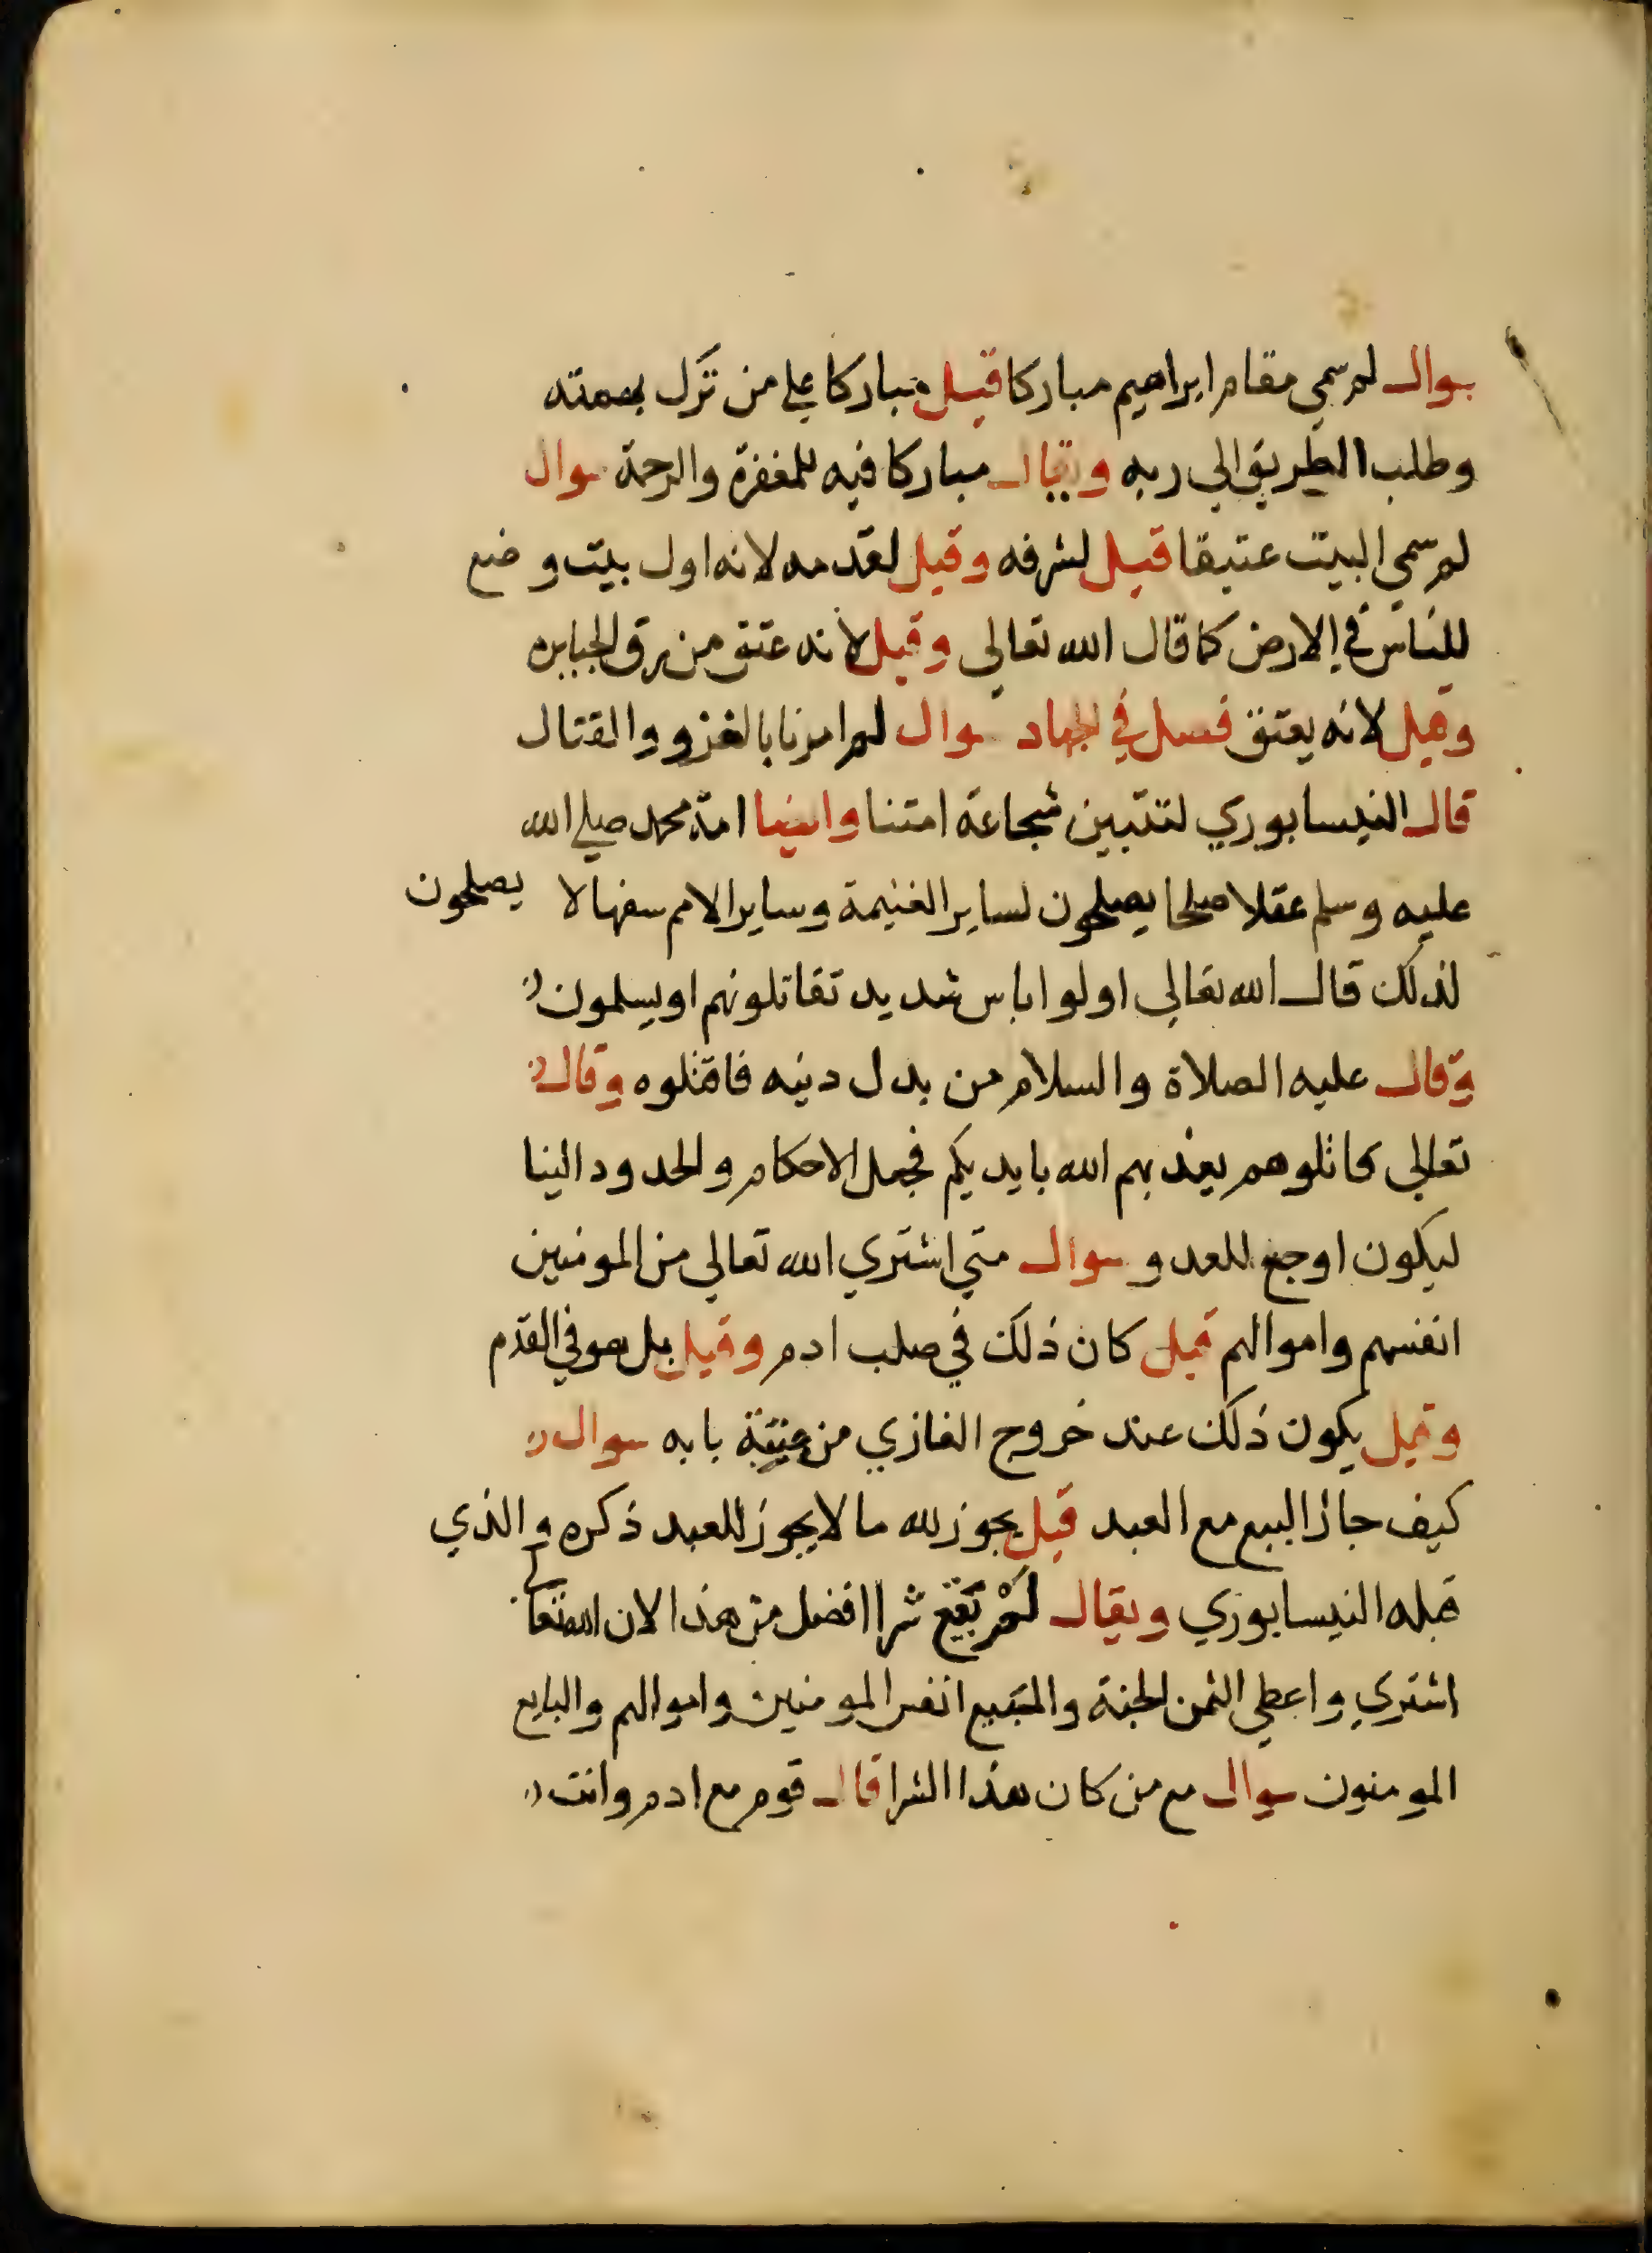 سوال لم سمي مقام ابراهيم مباركا قيل مباركا على من نزل بهمته
وطلب الطريق الى ربه ويقال مباركا فيه للمغفرة والرحمة سوال
لم سمي البيت عتيقا قيل لشرفه وقيل لقدمه لانه اول بيت وضع
للناس في الارض كما قال الله تعالى وقيل لانه عتق من رق الجبابره
وقيل لانه يعتق فصل في الجهاد سوال لم امرنا بالغزو والقتال
قال النيسابوري لتتبين شجاعة امتنا وايضا امة محمد صلى الله
عليه وسلم عقلا صلحا يصلحون لساير الغنيمة وساير الامم سفها لا يصلحون
لذلك قال الله تعالى اولوا باس شديد تقاتلونهم او يسلمون
وقال عليه الصلاة والسلام من بدل دينه فاقتلوه وقال
تعالى قاتلوهم يعذبهم الله بايديكم فجعل الاحكام والحدود الينا
ليكون اوجع للعدو سوال متي اشتري الله تعالى من المومنين
انفسهم واموالهم قيل كان ذلك في صلب ادم وقيل بل هو في القدم
وقيل يكون ذلك عند خروج الغازي من عتبة بابه سوال
كيف جاز البيع مع العبد قيل يجوز لله ما لا يجوز للعبد ذكره والذي
قبله النيسابوري ويقال لم يقع شرا افضل من هذا لان الله تعالى
اشتري واعطي الثمن الجنة والمبيع انفس المومنين واموالهم والبايع
المومنون سوال مع من كان هذا الشرا قال قوم مع ادم وانت